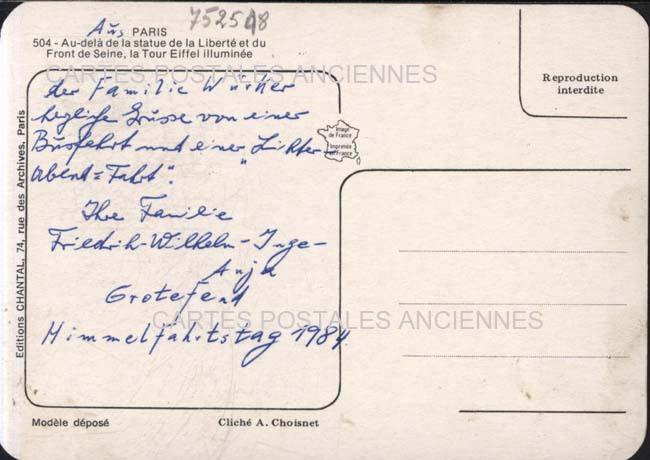 Aus PARIS
752548
504 - Au-delà de la statue de la Liberté et du
Front de Seine, la Tour Eiffel illuminée
CARTES POSTALES ANCIENNES
der Familie
herzliche Grüsse von einer
Busfahrt und einer "Lichter-
abend=Fahrt".
Ihre Familie
Friedrich-Wilhelm-Inge-
Anja
Grotefend
Himmelfahrtstag 1984.
CARTES POSTALES ANCIENNES
Image
de France
Imprimée
en France
Reproduction
interdite
Editions CHANTAL, 74, rue des Archives, Paris
Modèle déposé
Cliché A. Choisnet